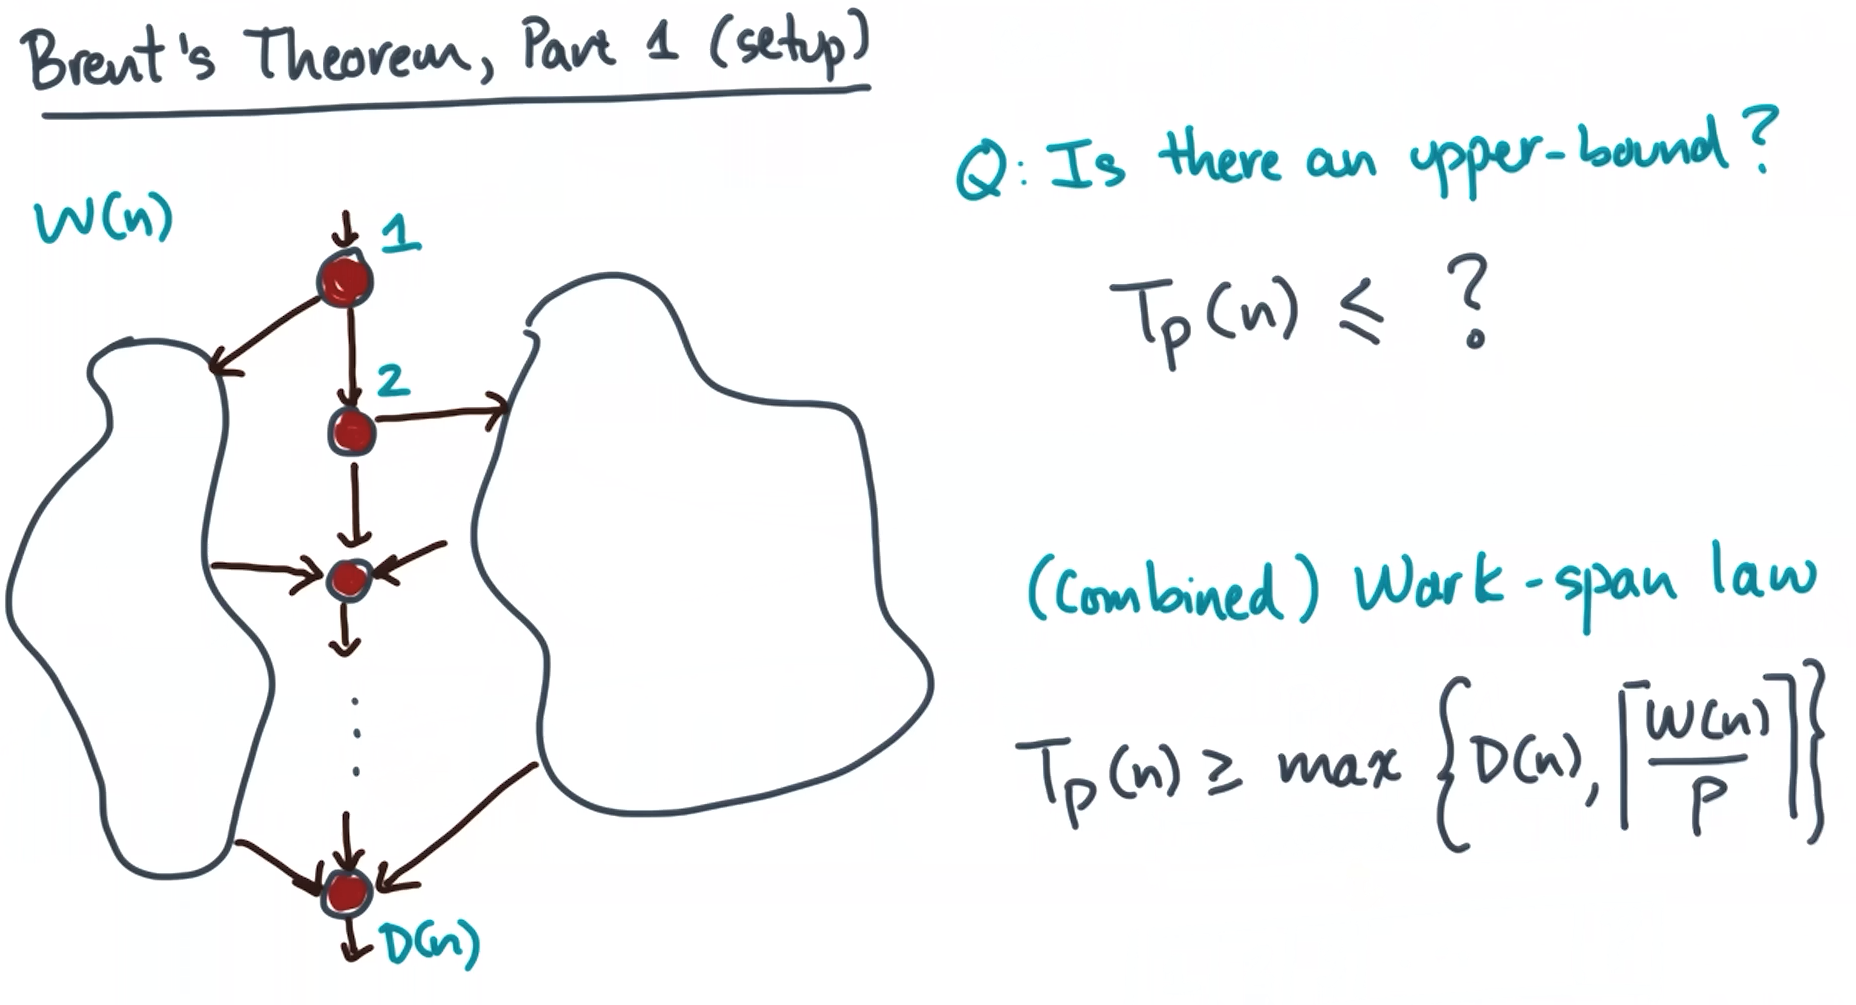 Brent's Theorem, Part 1 (setup)
W(n)
1
2
D(n)
Q: Is there an upper-bound?
Tp(n) ≤ ?
(Combined) Work-span law
Tp(n) ≥ max {D(n), ⌈W(n)/P⌉}